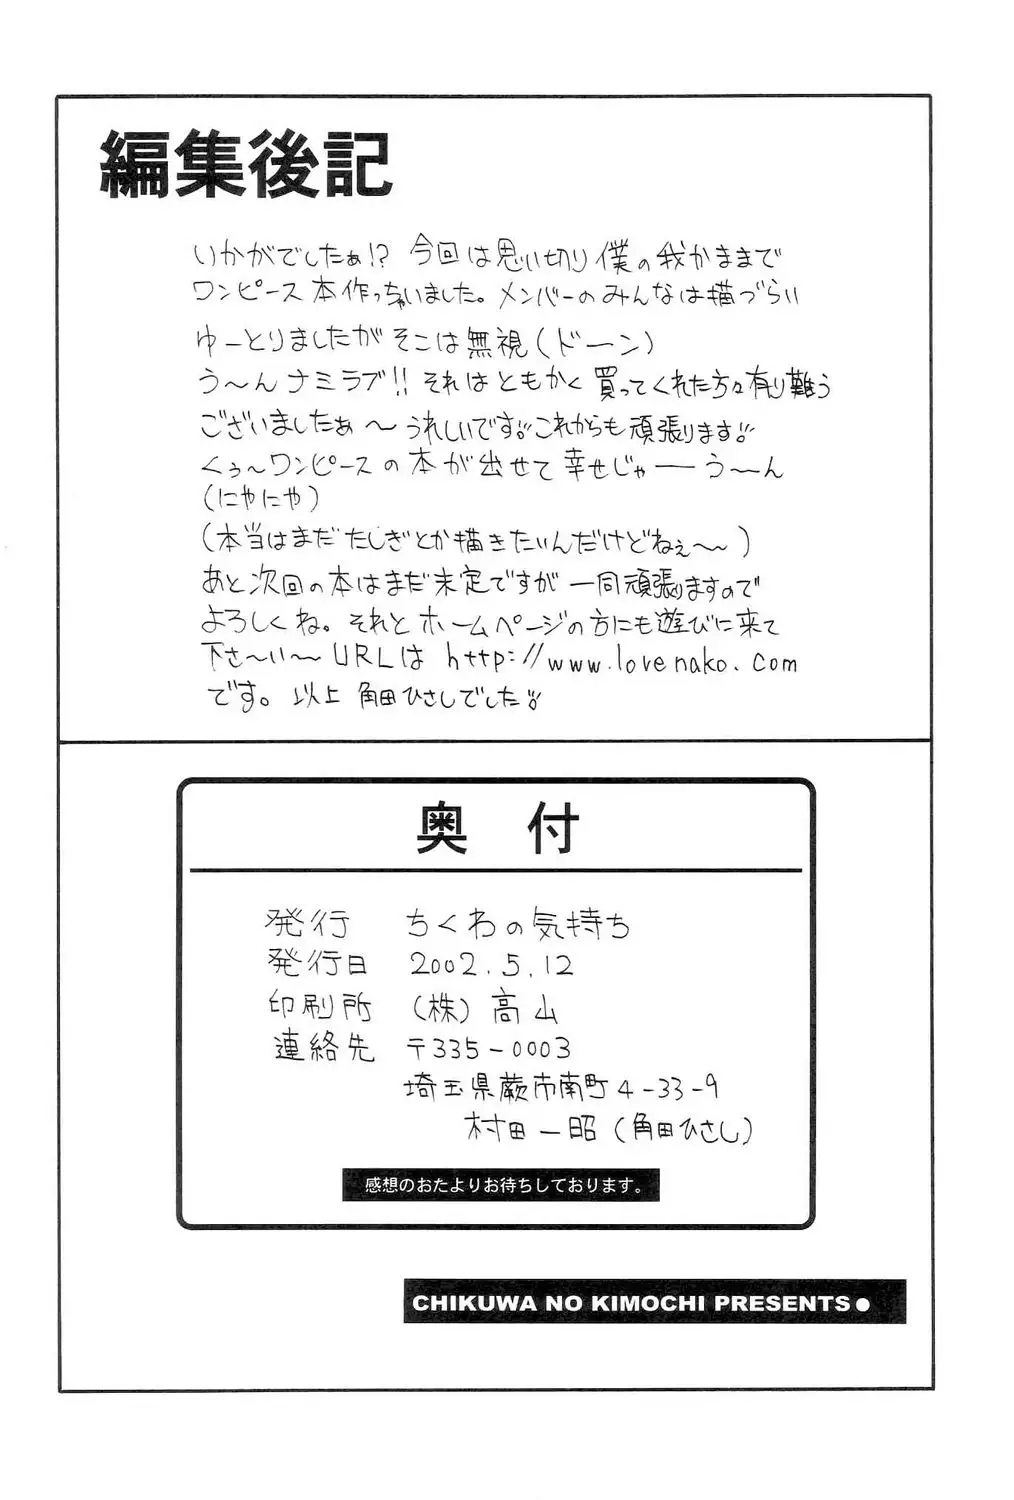 編集後記
いかがでしたぁ!? 今回は思い切り僕の我がままで
ワンピース本作っちゃいました。メンバーのみんなは描づらい
ゆーとりましたがそこは無視(ドーン)
う〜んナミラブ!! それはともかく買ってくれた方々有り難う
ございましたぁ〜うれしいです!!これからも頑張ります!!
くぅ〜ワンピースの本が出せて幸せじゃーーう〜ん
(にやにや)
(本当はまだたしぎとか描きたいんだけどねぇ〜〜)
あと次回の本はまだ未定ですが一同頑張りますので
よろしくね。それとホームページの方にも遊びに来て
下さ〜い〜URLは http://www.lovenako.com
です。以上 角田ひさしでした!!
奥 付
発行 ちくわの気持ち
発行日 2002.5.12
印刷所 (株)高山
連絡先 〒335-0003
埼玉県蕨市南町4-33-9
村田一昭(角田ひさし)
感想のおたよりお待ちしております。
CHIKUWA NO KIMOCHI PRESENTS●